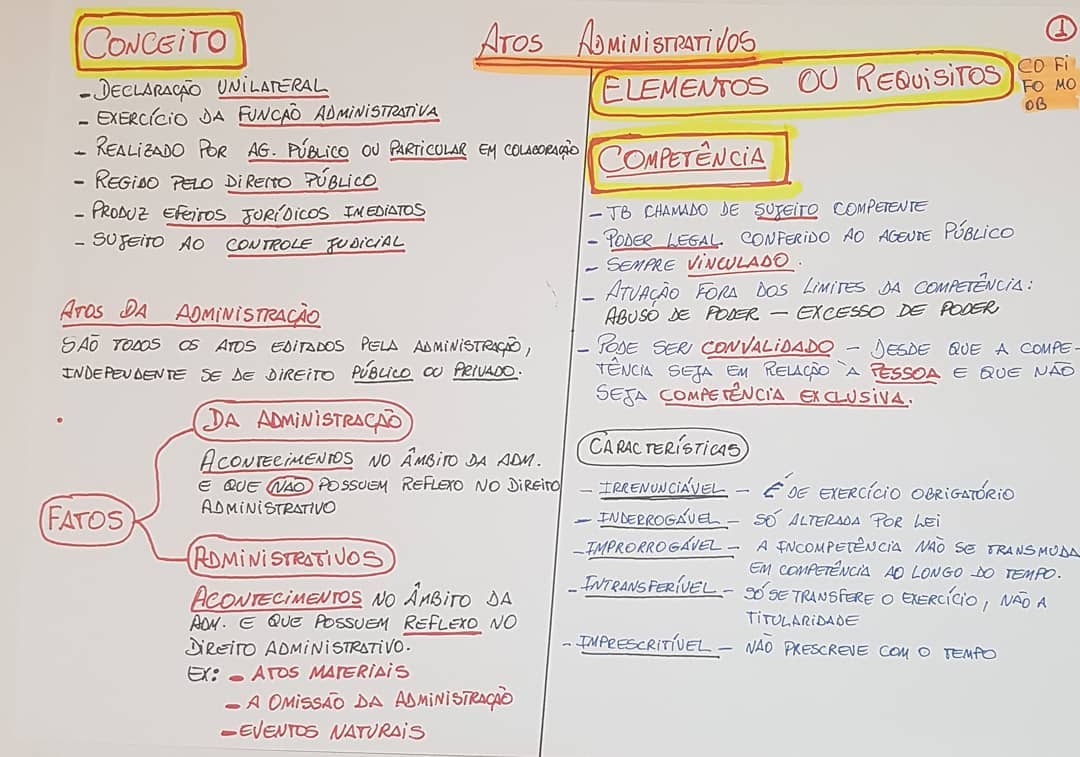 ATOS ADMINISTRATIVOS
1
CONCEITO
- DECLARAÇÃO UNILATERAL
- EXERCÍCIO DA FUNÇÃO ADMINISTRATIVA
- REALIZADO POR AG. PÚBLICO OU PARTICULAR EM COLABORAÇÃO
- REGIDO PELO DIREITO PÚBLICO
- PRODUZ EFEITOS JURÍDICOS IMEDIATOS
- SUJEITO AO CONTROLE JUDICIAL
ATOS DA ADMINISTRAÇÃO
SÃO TODOS OS ATOS EDITADOS PELA ADMINISTRAÇÃO,
INDEPENDENTE SE DE DIREITO PÚBLICO OU PRIVADO.
FATOS
DA ADMINISTRAÇÃO
ACONTECIMENTOS NO ÂMBITO DA ADM.
E QUE NÃO POSSUEM REFLEXO NO DIREITO
ADMINISTRATIVO
ADMINISTRATIVOS
ACONTECIMENTOS NO ÂMBITO DA
ADM. E QUE POSSUEM REFLEXO NO
DIREITO ADMINISTRATIVO.
EX: - ATOS MATERIAIS
- A OMISSÃO DA ADMINISTRAÇÃO
- EVENTOS NATURAIS
ELEMENTOS OU REQUISITOS
CO FI
FO MO
OB
COMPETÊNCIA
- TB CHAMADO DE SUJEITO COMPETENTE
- PODER LEGAL CONFERIDO AO AGENTE PÚBLICO
- SEMPRE VINCULADO.
- ATUAÇÃO FORA DOS LIMITES DA COMPETÊNCIA:
ABUSO DE PODER - EXCESSO DE PODER
- PODE SER CONVALIDADO - DESDE QUE A COMPE-
TÊNCIA SEJA EM RELAÇÃO À PESSOA E QUE NÃO
SEJA COMPETÊNCIA EXCLUSIVA.
CARACTERÍSTICAS
- IRRENUNCIÁVEL - É DE EXERCÍCIO OBRIGATÓRIO
- INDERROGÁVEL - SÓ ALTERADA POR LEI
- IMPRORROGÁVEL - A INCOMPETÊNCIA NÃO SE TRANSMUDA
EM COMPETÊNCIA AO LONGO DO TEMPO.
- INTRANSFERÍVEL - SÓ SE TRANSFERE O EXERCÍCIO, NÃO A
TITULARIDADE
- IMPRESCRITÍVEL - NÃO PRESCREVE COM O TEMPO